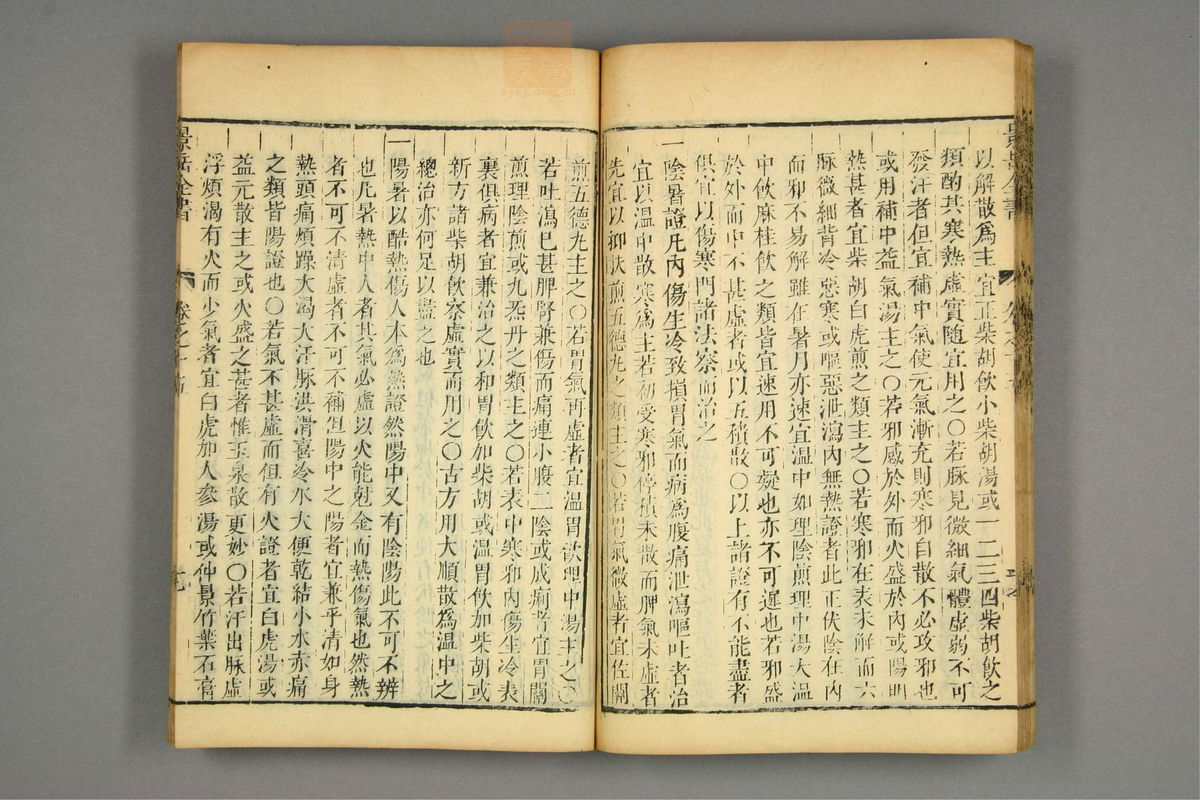 以解散爲主宜正柴胡飲小柴胡湯或一二三四柴胡飲之
類酌其寒熱虛實隨宜用之〇若脉見微細氣體虛弱不可
發汗者但宜補中氣使元氣漸充則寒邪自散不必攻邪也
或用補中益氣湯主之〇若邪感於外而火盛於內或陽明
熱甚者宜柴胡白虎煎之類主之〇若寒邪在表未解而六
脉微細背冷惡寒或嘔惡泄瀉內無熱證者此正伏陰在內
而邪不易解雖在暑月亦速宜溫中如理陰煎理中湯大溫
中飲麻桂飲之類皆宜速用不可疑也亦不可遲也若邪盛
於外而中不甚虛者或以五積散〇以上諸證有不能盡者
俱宜以傷寒門諸法察而治之
一陰暑證凡內傷生冷致損胃氣而病爲腹痛泄瀉嘔吐者治
宜以溫中散寒爲主若初受寒邪停積未散而脾氣未虛者
先宜以抑扶煎五德丸之類主之〇若胃氣微虛者宜佐關
煎五德丸主之〇若胃氣再虛者宜溫胃飲理中湯主之〇
若吐瀉已甚脾腎兼傷而痛連小腹二陰或成痢者宜胃關
煎理陰煎或九炁丹之類主之〇若表中寒邪內傷生冷表
裏俱病者宜兼治之以和胃飲加柴胡或溫胃飲加柴胡或
新方諸柴胡飲察虛實而用之〇古方用大順散爲溫中之
總治亦何足以盡之也
一陽暑以酷熱傷人本爲熱證然陽中又有陰陽此不可不辨
也凡暑熱中人者其氣必虛以火能尅金而熱傷氣也然熱
者不可不清虛者不可不補但陽中之陽者宜兼乎清如身
熱頭痛煩躁大渴大汗脉洪滑喜冷水大便乾結小水赤痛
之類皆陽證也〇若氣不甚虛而但有火證者宜白虎湯或
益元散主之或火盛之甚者惟玉泉散更妙〇若汗出脉虛
浮煩渴有火而少氣者宜白虎加人參湯或仲景竹葉石膏
景岳全書
卷之十五